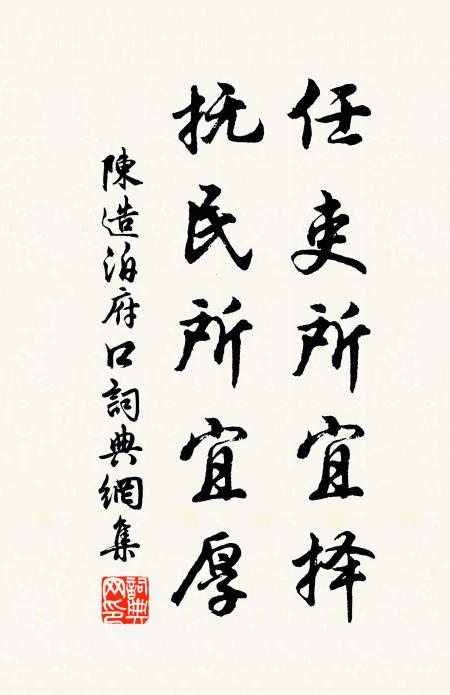 任吏所宜择
抚民所宜厚
陳造泊府口詞典網集
詞典網印